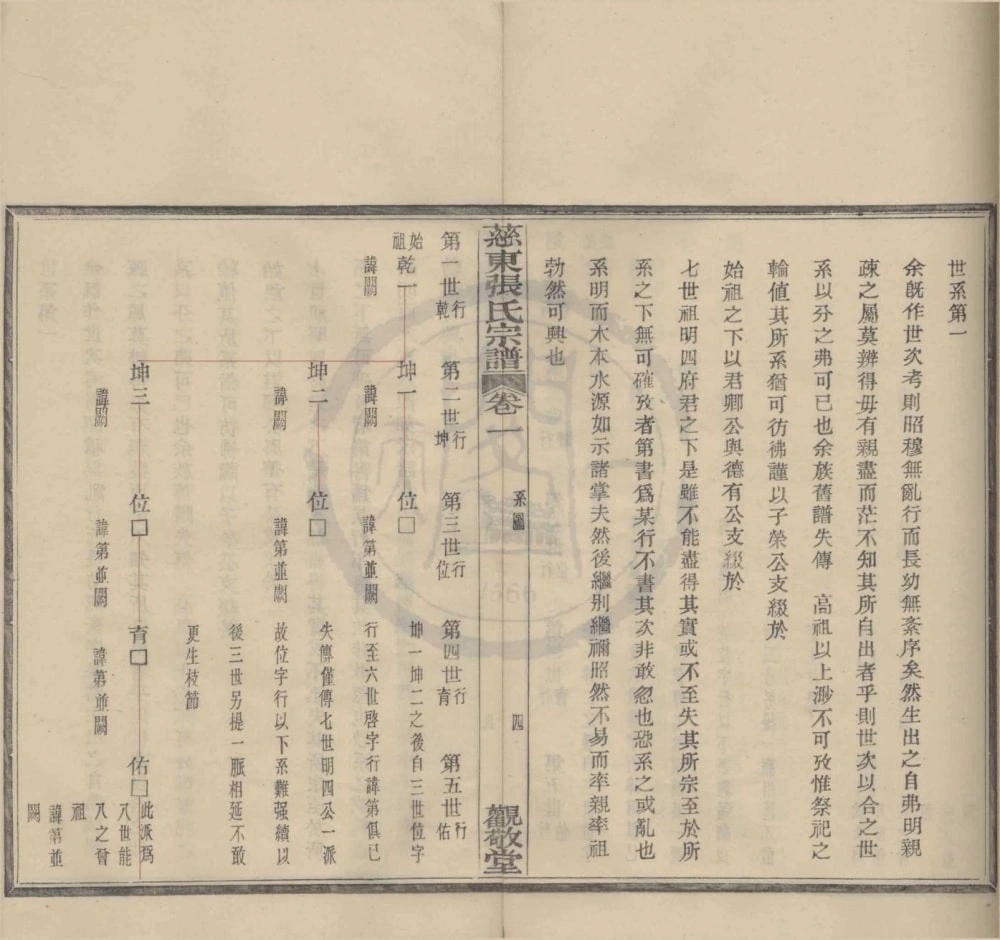 世系第一
余旣作世次考則昭穆無亂行而長幼無紊序矣然生出之自弗明親
疎之屬莫辨得毋有親盡而茫不知其所自出者乎則世次以合之世
系以分之弗可已也余族舊譜失傳　高祖以上渺不可攷惟祭祀之
輪值其所系猶可彷彿謹以子榮公支綴於
始祖之下以君卿公與德有公支綴於
七世祖明四府君之下是雖不能盡得其實或不至失其所宗至於所
系之下無可確攷者第書爲某行不書其次非敢忽也恐系之或亂也
系明而木本水源如示諸掌夫然後繼別繼禰昭然不易而率親率祖
勃然可興也
慈東張氏宗譜　卷一　系圖　四　觀敬堂
第一世乾行　第二世坤行　第三世位行　第四世育行　第五世佑行
始祖乾一　坤一　位□　坤一坤二之後自三世位字
諱闕　諱闕　諱第並闕　行至六世啓字行諱第俱已
坤二　位□　失傳僅傳七世明四公一派
諱闕　諱第並闕　故位字行以下系難强續以
後三世另提一脈相延不敢
更生枝節
坤三　位□　育□　佑□　此派爲
諱闕　諱第並闕　諱第並闕　八世能
八之曾
祖
諱第並
闕